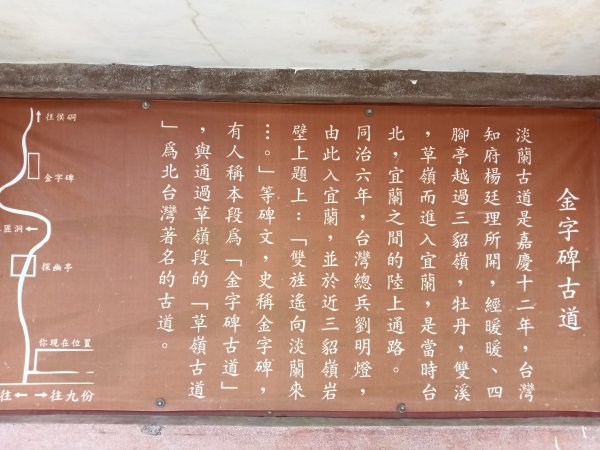 金字碑古道
淡蘭古道是嘉慶十二年，台灣
知府楊廷理所開，經暖暖、四
腳亭越過三貂嶺，牡丹，雙溪
，草嶺而進入宜蘭，是當時台
北，宜蘭之間的陸上通路。
同治六年，台灣總兵劉明燈，
由此入宜蘭，並於近三貂嶺岩
壁上題上：「雙旌遙向淡蘭來
…。」等碑文，史稱金字碑，
有人稱本段為「金字碑古道」
，與通過草嶺段的「草嶺古道
」為北台灣著名的古道。
↑往侯硐
金字碑
匪洞←
探幽亭
你現在位置
往←
→往九份